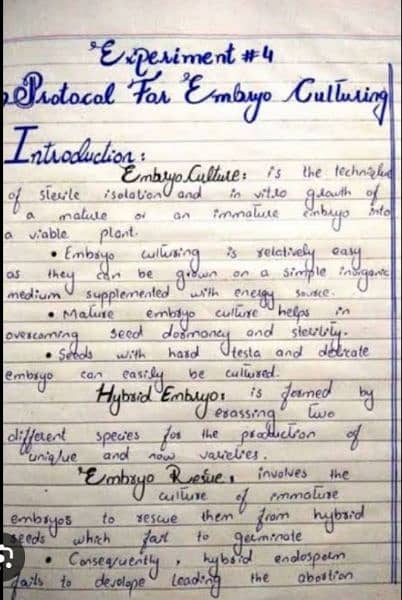 Experiment #4
Protocol For Embryo Culturing
Introduction:
Embryo Culture: is the technique
of sterile isolation and in vitro growth of
a mature or an immature embryo into
a viable plant.
• Embryo culturing is relctively easy
as they can be grown on a simple inorganic
medium supplemented with energy source.
• Mature embryo culture helps in
overcoming seed dormancy and sterility.
• Seeds with hard testa and delicate
embryo can easily be cultured.
Hybrid Embryo: is formed by
crassing two
different species for the production of
unique and new varieties.
Embryo Resue, involves the
culture of immature
embryos to rescue them from hybrid
seeds which fail to germinate
• Consequently, hybrid endosperm
fails to develope leading the abortion